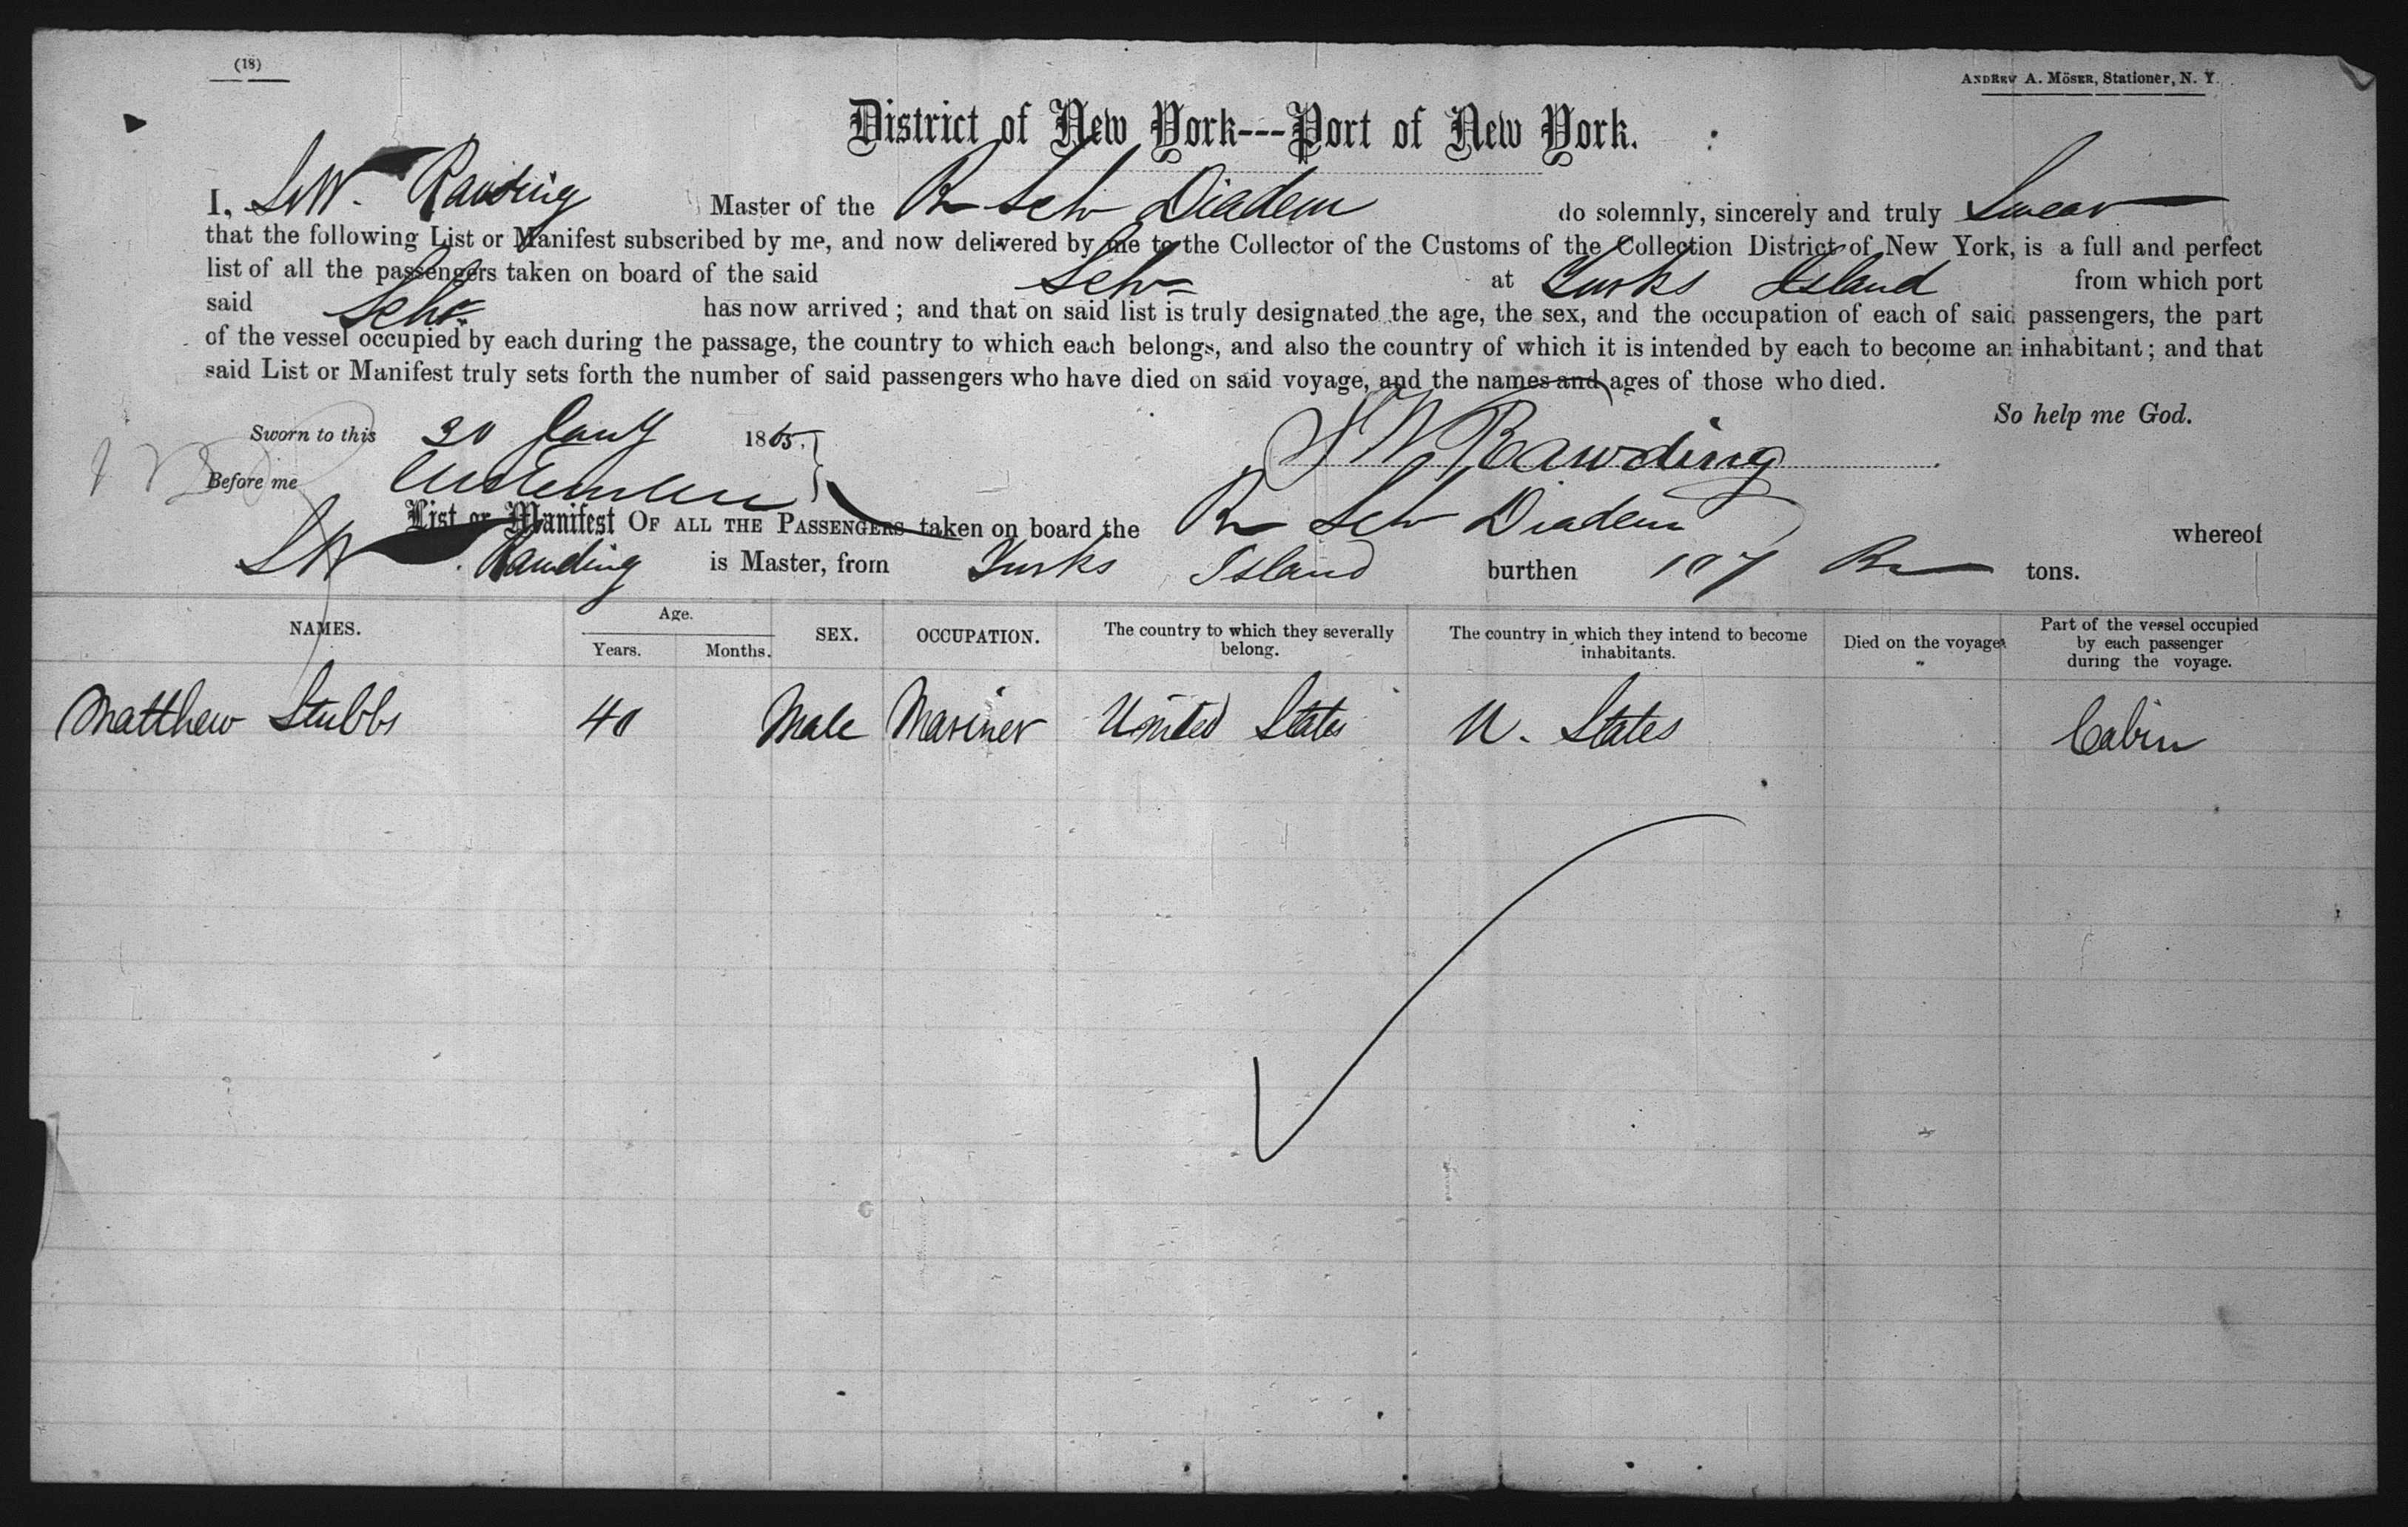 (18)
ANDREW A. MÖSER, Stationer, N. Y.
District of New York---Port of New York.
I, S W Rawding Master of the Br Schr Diadem do solemnly, sincerely and truly Swear
that the following List or Manifest subscribed by me, and now delivered by me to the Collector of the Customs of the Collection District of New York, is a full and perfect
list of all the passengers taken on board of the said Schr at Turks Island from which port
said Schr has now arrived; and that on said list is truly designated the age, the sex, and the occupation of each of said passengers, the part
of the vessel occupied by each during the passage, the country to which each belongs, and also the country of which it is intended by each to become an inhabitant; and that
said List or Manifest truly sets forth the number of said passengers who have died on said voyage, and the names and ages of those who died.
So help me God.
Sworn to this 30 Jany 1865. S W Rawding
Before me
List or Manifest OF ALL THE PASSENGERS taken on board the Br Schr Diadem whereof
S W Rawding is Master, from Turks Island burthen 107 Br tons.
NAMES. Age. Years. Months. SEX. OCCUPATION. The country to which they severally belong. The country in which they intend to become inhabitants. Died on the voyage. Part of the vessel occupied by each passenger during the voyage.
Matthew Stubbs 40 Male Mariner United States U. States Cabin